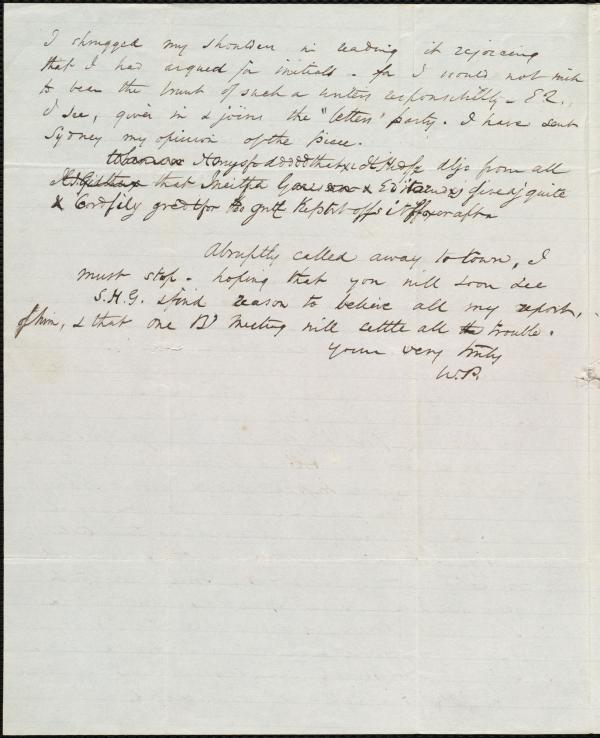 I shrugged my shoulders in reading it rejoicing
that I had argued for initials - for I would not wish
to bear the brunt of such a writers responsibility - EQ.,
I see, given in & joins the "letters' party. I have sent
Sydney my opinion of the piece.
that from all
that quite
Abruptly called away to town, I
must stop - hoping that you will soon see
S.H.G. & find reason to believe all my report,
of him, & that one Bd meeting will settle all trouble.
Yours very truly
W.P.